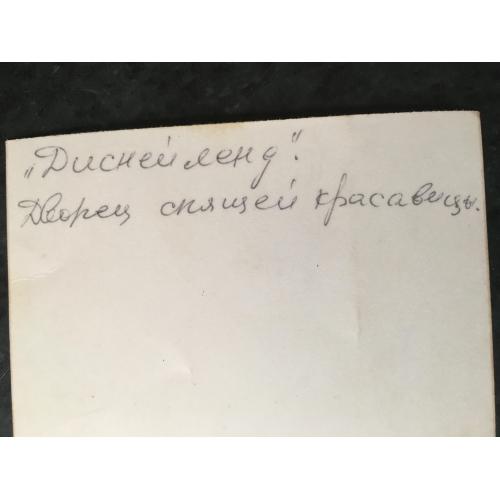 „Диснейленд".
Дворец спящей красавицы.